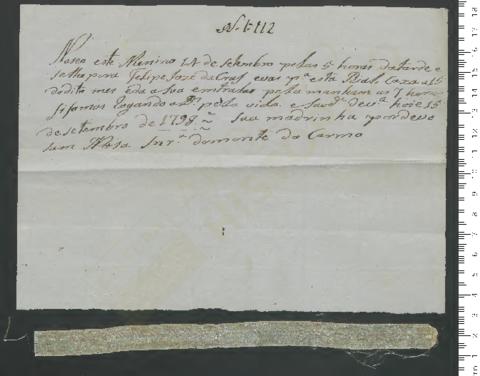 N. 1112
Nasceo este Menino 14 de Setembro pelas 5 horas da tarde e
se lhe pora Felipe José da Cruz, e vai pª esta Rial Caza a 15
do dito mes e da a sua entrada pela manham as 7 horas
ficamos Rogando a Ds. pela vida e Saude de vª hoie 15
de setembro de 1798 sua madrinha poro devo
sam Nosa Snrª. do monte do Carmo